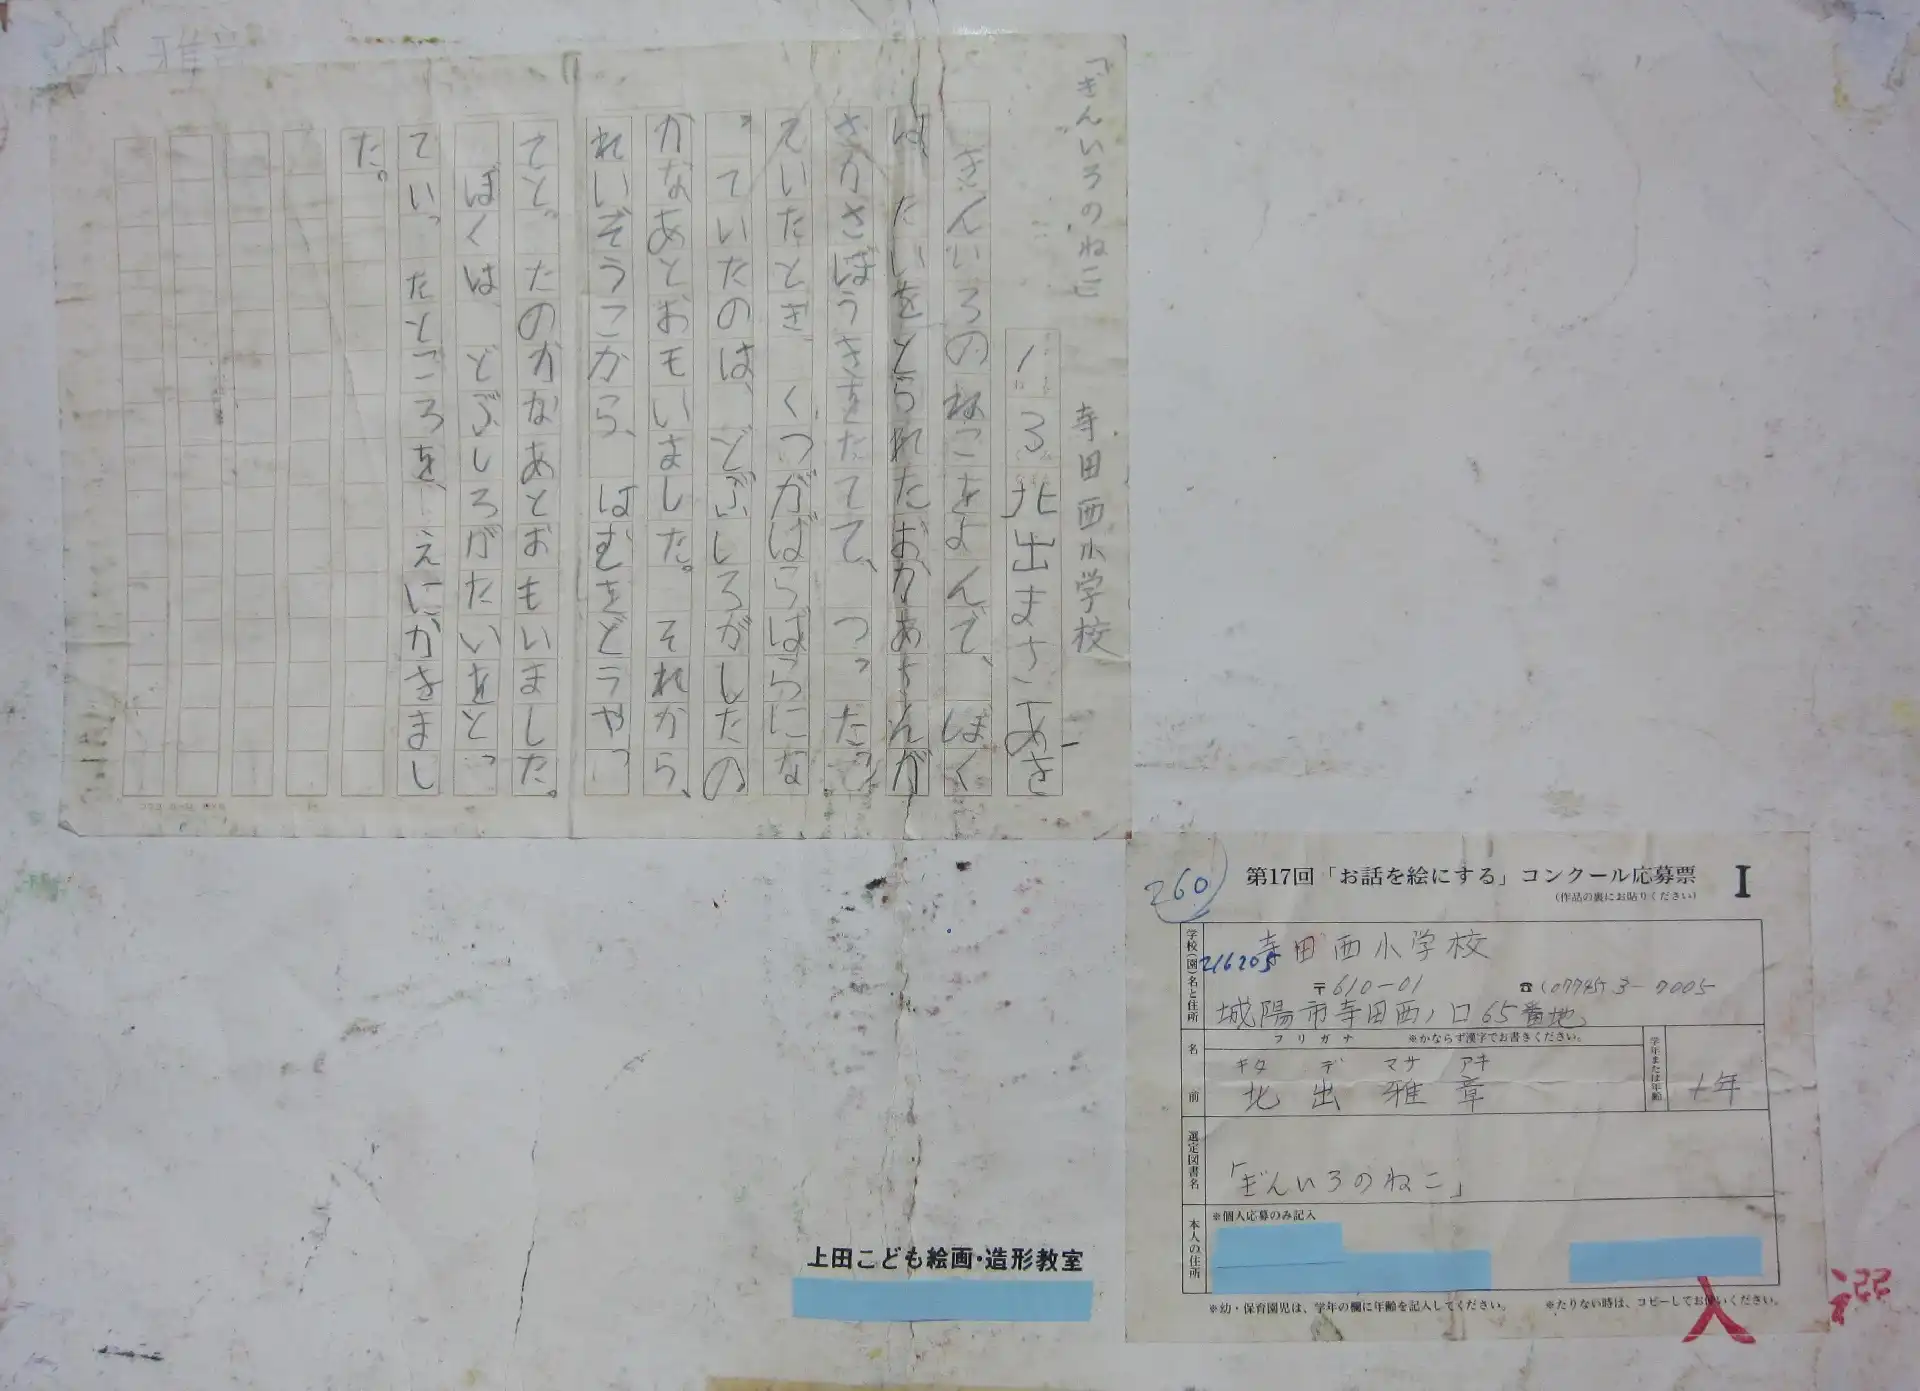 「ぎんいろのねこ」 寺田西小学校
1 3 北出まさあき
ぎんいろのねこをよんで、ぼく
は、たいをとられたおかあさんが
さかさぼうきをたてて、つったっ
えいたとき くつがばらばらにな
っていたのは、どぶしろがしたの
かなあとおもいました。それから、
れいぞうこから、はむをどうやっ
てとったのかなあとおもいました。
ぼくは、どぶしろがたいをとっ
ていったところを、えにかきまし
た。
260
第17回「お話を絵にする」コンクール応募票 I
(作品の裏にお貼りください)
学校(園)名と住所
寺田西小学校
216205
〒610-01 ☎(07745)3-7005
城陽市寺田西ノ口65番地
フリガナ ※かならず漢字でお書きください。
名前
キタ デ マサ アキ
北出雅章
学年または年齢
1年
選定図書名
「ぎんいろのねこ」
本人の住所
※個人応募のみ記入
※幼・保育園児は、学年の欄に年齢を記入してください。 ※たりない時は、コピーしてお使いください。
入選
上田こども絵画・造形教室